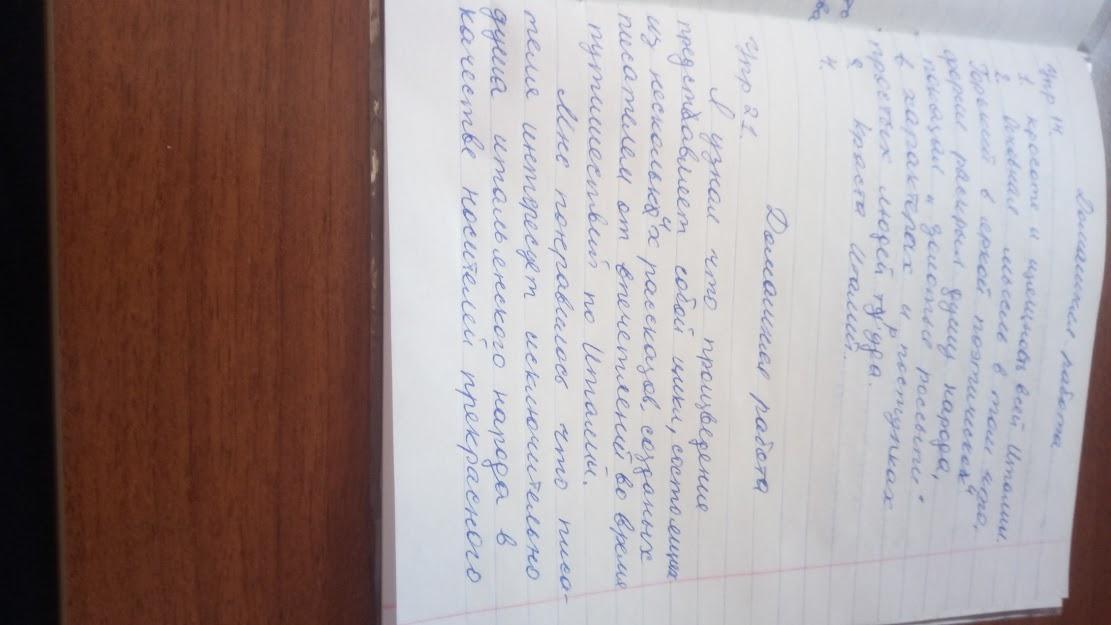 Домашняя работа
Упр 14.
1. красоте и щемишоть всей Италии.
2. Основная мысль в том что,
Горький в яркой поэтической
форме раскрыл душу народа,
показал и
в характерах и поступках
простых людей труда.
Красота Италии..
4.
Домашняя работа
Упр 21.
Я узнал что произведение
представляет собой цикл, состоящих
из нескольких рассказов, созданых
писателем от впечетлений во время
путишествий по Италии.
Мне понравилось что писа-
теля интересует исключительно
душа итальянского народа в
качестве носителей прекрасного